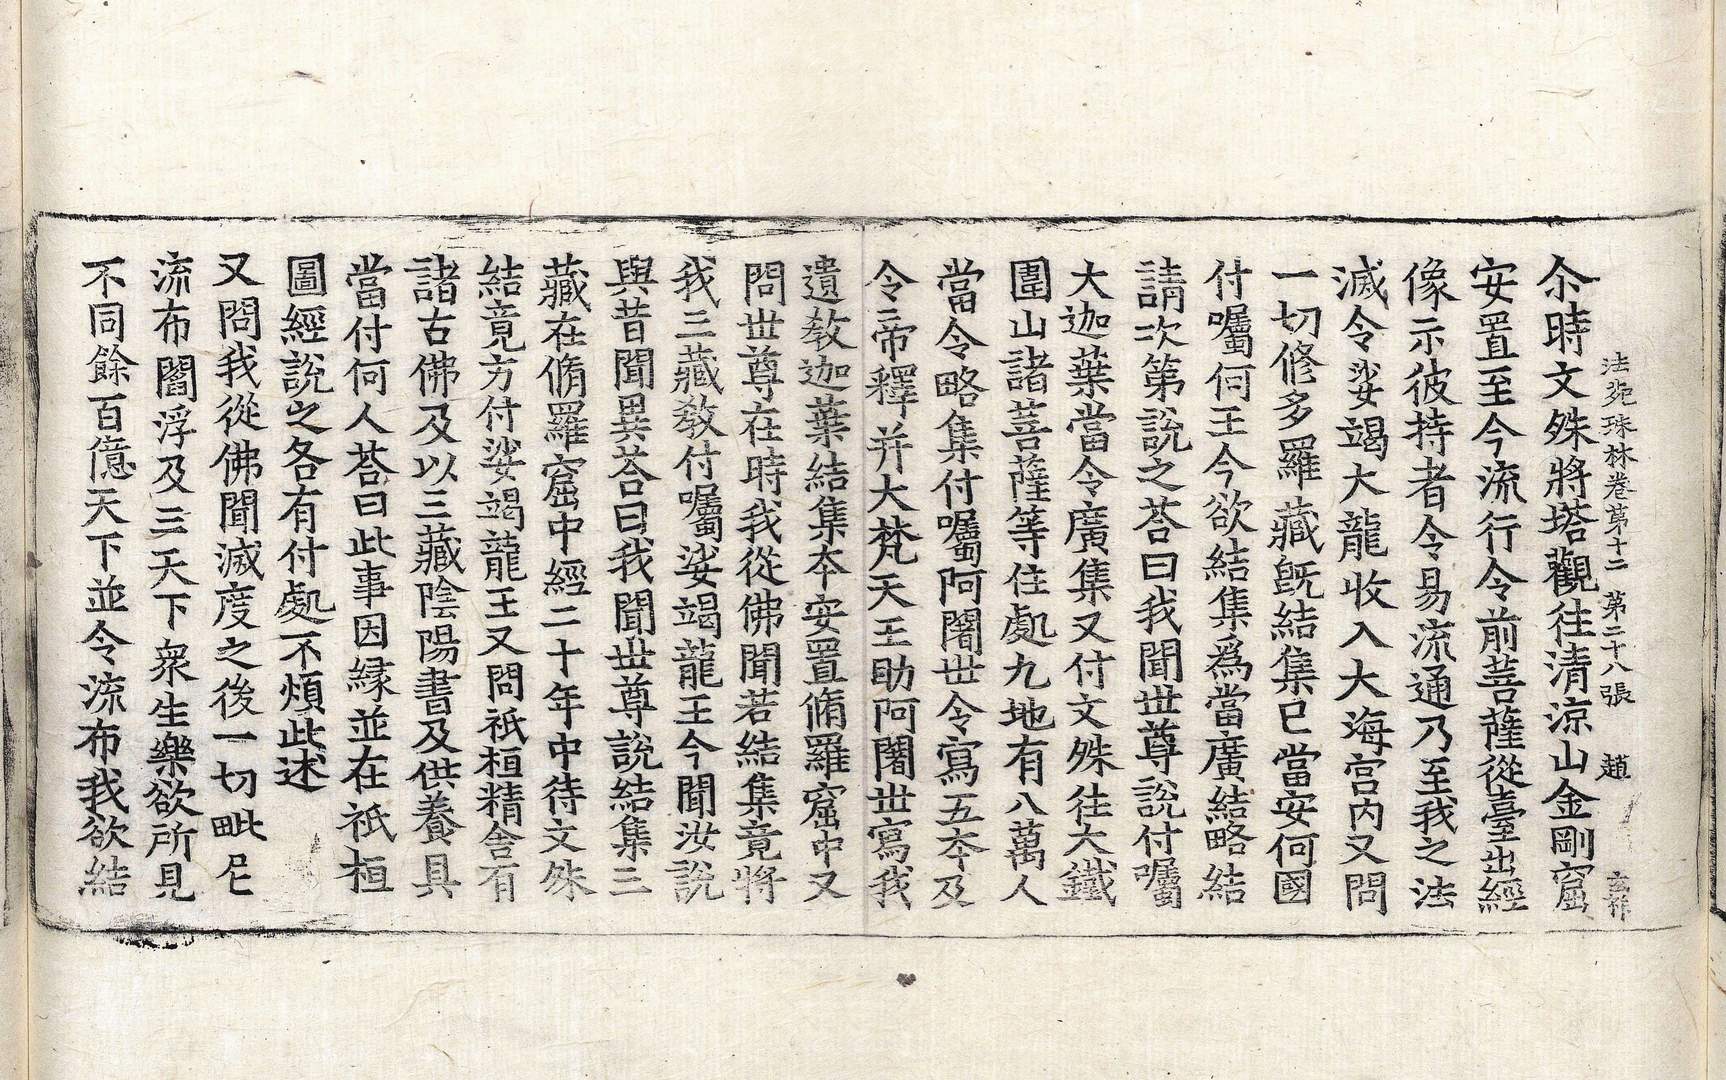 法苑珠林卷第十二 第二十八張 趙
尒時文殊將塔觀往清凉山金剛窟
安置至今流行令前菩薩從臺出經
像示彼持者令易流通乃至我之法
滅令娑竭大龍收入大海宮内又問
一切修多羅藏旣結集已當安何國
付囑何王今欲結集爲當廣結略結
請次第說之荅曰我聞世尊說付囑
大迦葉當令廣集又付文殊往大鐵
圍山諸菩薩等住處九地有八萬人
當令略集付囑阿闍世令寫五夲及
令帝釋并大梵天王助阿闍世寫我
遺敎迦葉結集夲安置脩羅窟中又
問世尊在時我從佛聞若結集竟將
我三藏敎付囑娑竭龍王今聞汝說
與昔聞異荅曰我聞世尊說結集三
藏在脩羅窟中經二十年中待文殊
結竟方付娑竭龍王又問祇桓精舍有
諸古佛及以三藏陰陽書及供養具
當付何人荅曰此事因緣並在祇桓
圖經說之各有付處不煩此述
又問我從佛聞滅度之後一切毗尼
流布閻浮及三天下衆生樂欲所見
不同餘百億天下並令流布我欲結